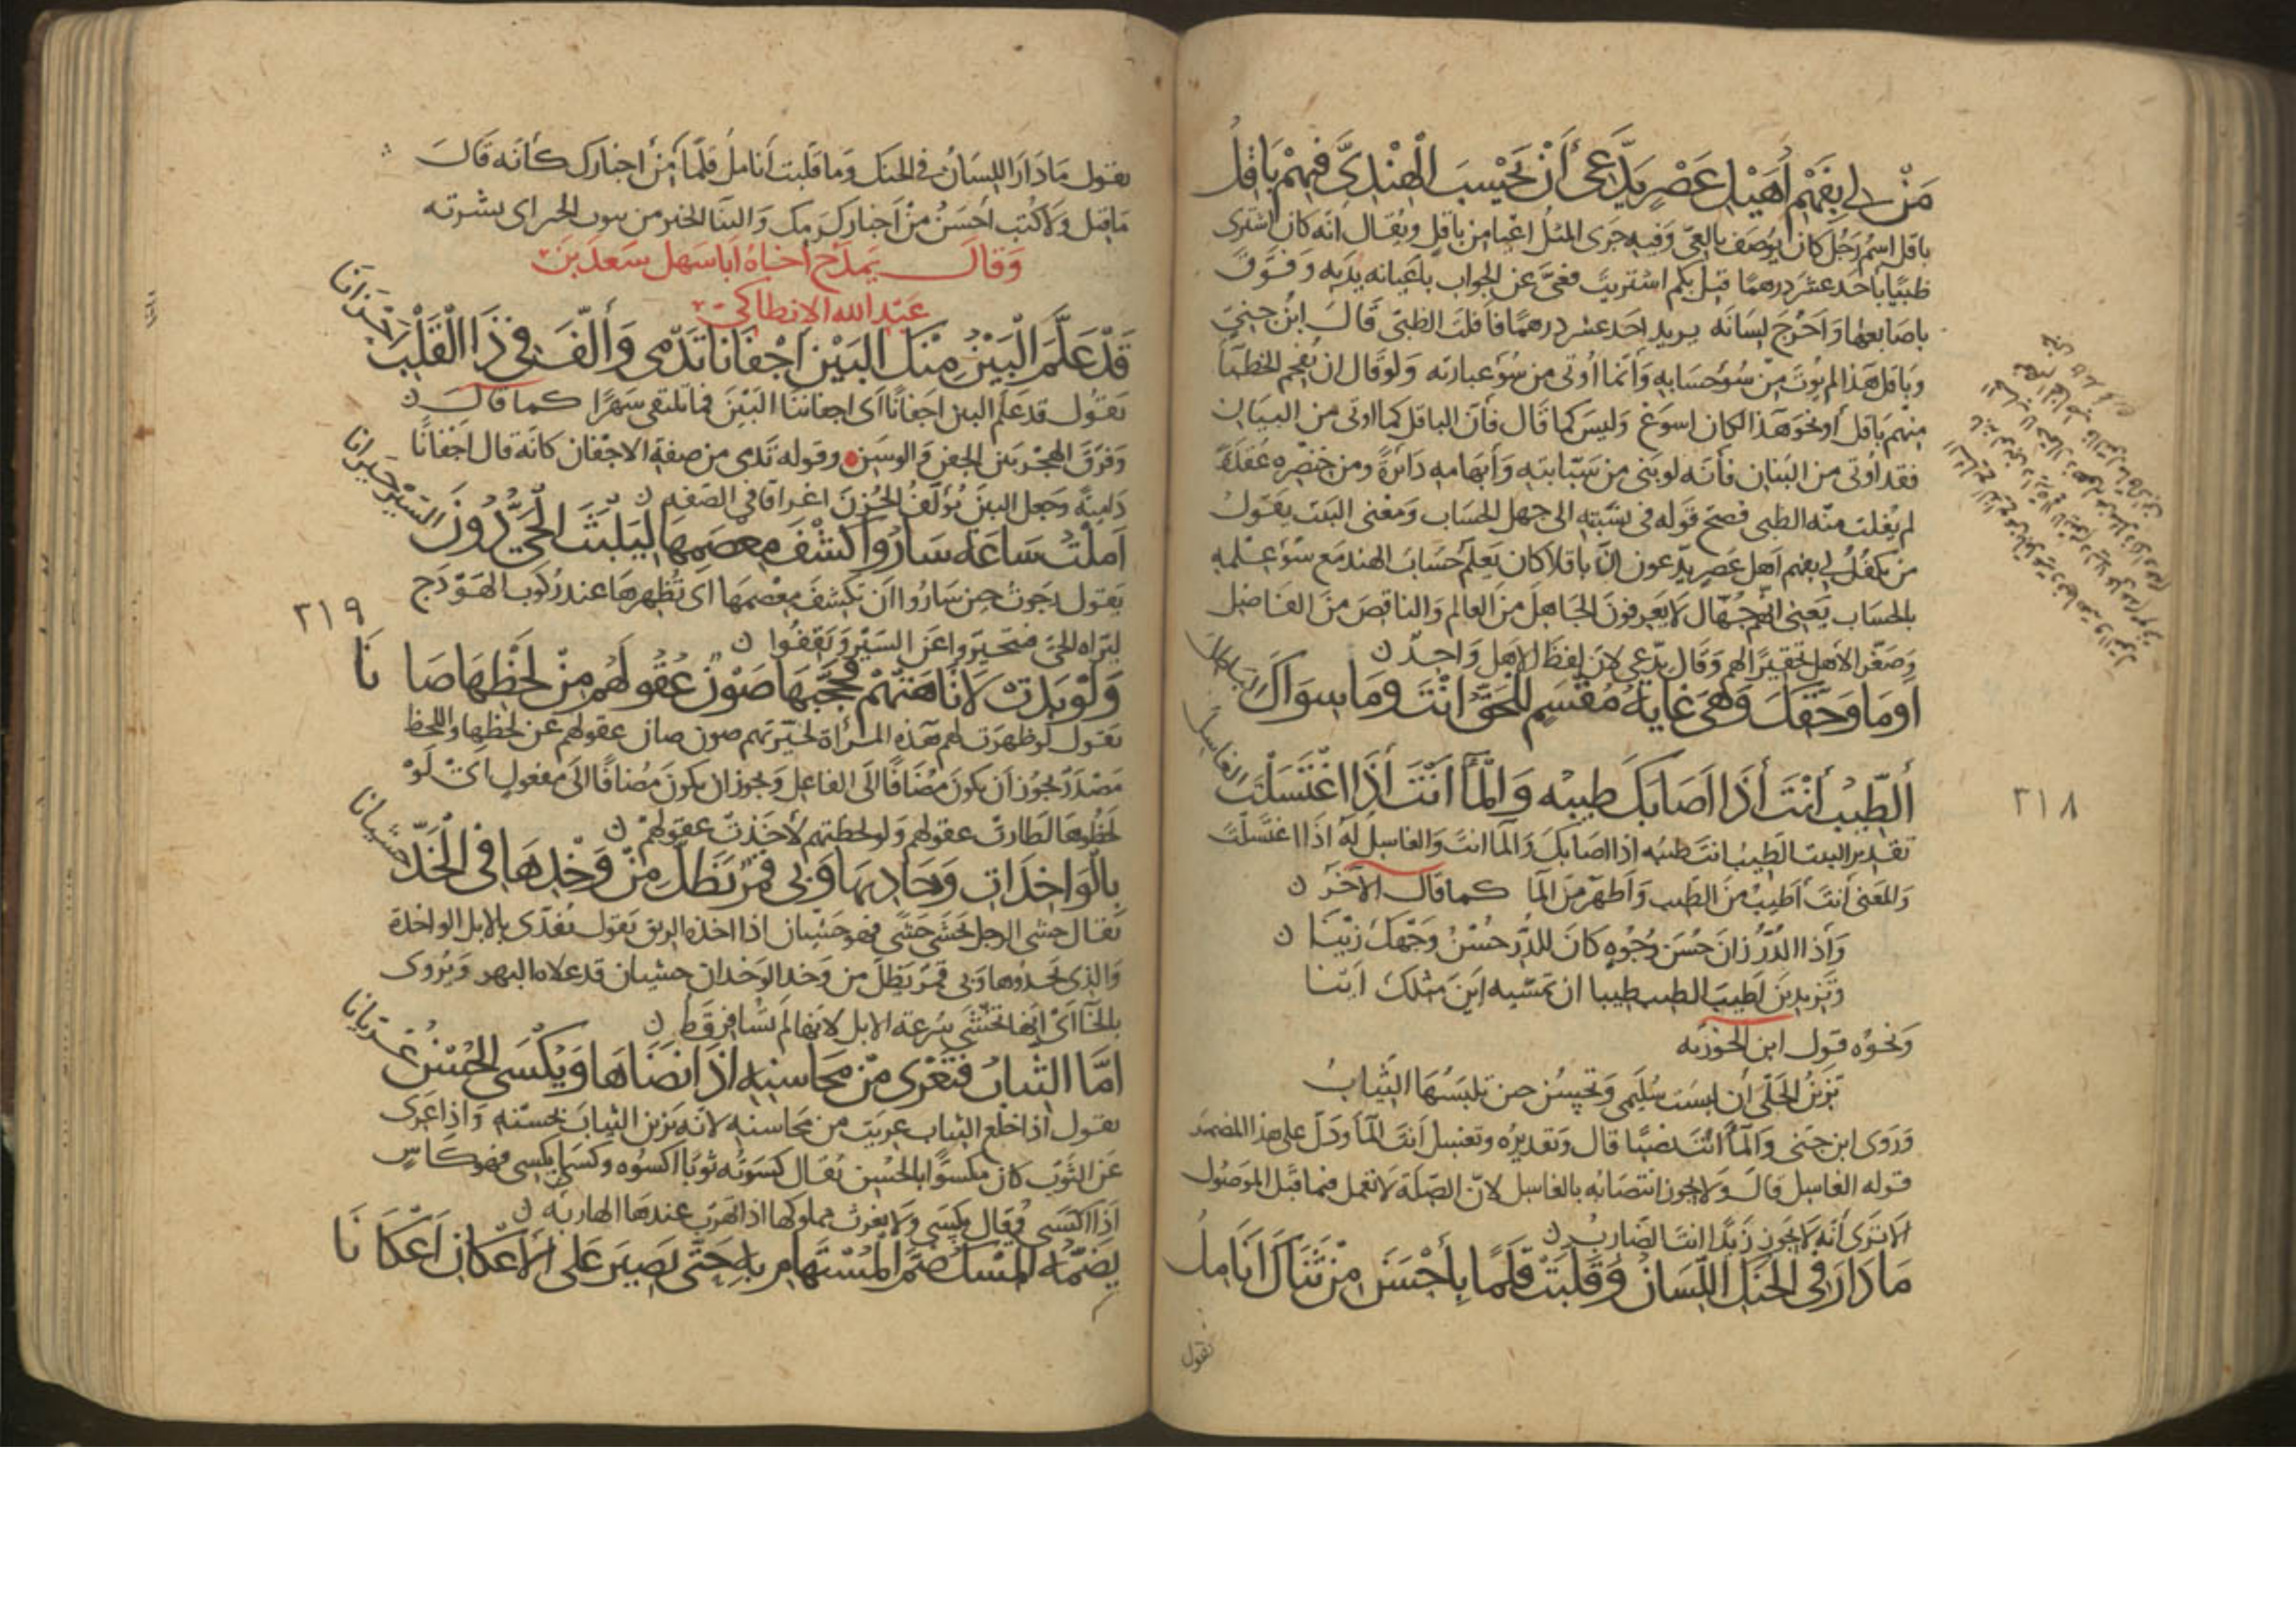 مَنْ لي بِفَهْمِ أُهَيْلِ عَصْرٍ يَدَّعِي أَنْ يَحْسِبَ الْهِنْدِيَّ فيهِمْ بَاقِلُ
باقل اسم رجل كان يوصف بالعيّ وفيه جرى المثل اعيا من باقل ويقال انه كان اشترى
ظبيًا بأحد عشر درهمًا فقيل بكم اشتريت فعيّ عن الجواب باعيائه يديه وفرّق
باصابعهما وأخرج لسانه يريد احد عشر درهما فافلت الظبي قال ابن جني
وباقل هذا لم يؤت من سوء حسابه وأنما أوتى من سوء عبارته ولو قال ان يفحم الخطباء
منهم باقل أو نحو هذا لكان اسوغ وليس كما قال فأن الباقل كما اوتى من البيان
فقد أوتى من البنان فأنه لو بنى من سبّابته وأبهامه دائرةً ومن خنصره عقلة
لم يفلت منه الظبى فصح قوله في نسبته الى جهل الحساب ومعنى البيت يقول
من يكفل لي بفهم اهل عصر يدّعون أنّ باقلا كان يعلم حساب الهند مع سوء علمه
بالحساب يعنى انهم جهّال لا يعرفون الجاهل من العالم والناقص من الفاضل
وصغّر الأهل تحقيرًا لهم وقال يدّعي لان لفظ الاهل واحد ن
أَوَمَا وَحَقِّكَ وَهْيَ غايَةُ مُقْسِمٍ لَلْحَقُّ أَنْتَ وَمَا سِوَاكَ الباطِلُ
أَلطِّيبُ أَنْتَ أَذَا أَصَابَكَ طِيبُه وَالْمَاءُ أَنْتَ أَذَا اغْتَسَلْتَ الغاسِلُ
تقدير البيت الطيب انت طيبه اذا اصابك والما انت والغاسل له اذا اغتسلت
والمعنى أنت أطيب من الطيب وأطهر من الما كما قال الآخر ن
وأذا الدُّرُّ زانَ حُسْنَ وُجُوهٍ كانَ للدُّرِّ حُسْنُ وَجْهِكَ زَيْنَا ن
وَتَزِيدِينَ أَطيبَ الطيب طيبا ان تمسّيه اين مثلك اينا
ونحوه قول ابن الجوزيه
تزين الحلى أن لبست سليمى وتحسن حين تلبسها الثيابُ
وروى ابن جنى والماءَ أنت نصبًا قال وتقديره وتغسل أنت الما ودلّ على هذا المضمر
قوله الغاسل قال ولا يجوز انتصابه بالغاسل لانّ الصلة لا تعمل فيما قبل الموصول
الا ترى أنه لا يجوز زيدًا انت الضارب ن
مَا دَارَ في الحَنَكِ اللِّسانُ وَقَلَّبَتْ قَلَمًا بِأَحْسَنَ مِنْ نَثَاكَ أَنَامِلُ
يقول
٢١٨
يقول ما دار اللسان في الحنك وما قلّبت أنامل قلمًا من اخبارك كأنه قال
ما قيل ولا كتب أحسن من أخبارك
وقال يمدح اخاه أبا سهل سعد بن
عبد الله الانطاكي
قَدْ عَلَّمَ الْبَيْنُ مِنَّا البَيْنَ أَجْفانَا تَدْمى وَأَلَّفَ في ذَا الْقَلْبِ أَحْزَانَا
يقول قد علّم البين اجفانًا أى اجفاننا البين فما تلتقى سهرًا كما قال ن
وفرّق الهجر بين الجفن والوسن وقوله تدمى من صفة الاجفان كأنه قال اجفانًا
داميةً وجعل البين يؤلّف الحزن اغراقا في الصفه ن
أَمَلْتُ سَاعَةَ سَارُوا كَشْفَ مِعْصَمِهَا لِيَلْبَثَ الْحَيُّ دُونَ السَّيْرِ حَيْرانَا
يقول رجوت حين ساروا ان تكشف معصمها أى تظهرها عند ركوب الهودج
ليراه الحىّ فيتحيروا عن السير ويقفوا ن
٢١٩
وَلَوْ بَدَتْ لَأَتَاهَتْهُمْ فَحَجَّبَهَا صَوْنٌ عُقُولَهُمُ مِنْ لَحْظِهَا صَانَا
يقول لو ظهرت لهم هذه المرأة لحيّرتهم صون صان عقولهم عن لحظها واللحظ
مصدر يجوز أن يكون مضافًا الى الفاعل ويجوز ان يكون مضافًا الى مفعول اى لو
لحظوها لطارت عقولهم ولو لحظتهم لأخذت عقولهم ن
بالْوَاخِدَاتِ وَحَادِيهَا وَبي قَمَرٌ يَظَلُّ مِنْ وَخْدِهَا في الْخَدِّ حَشْيانَا
يقال حشى الرجل يحشى حشًى فهو حشيان اذا اخذه الربو يقول يفدّى بالابل الواخدة
والذى يحدوها وبي قمر يظل من وخد الوخدان حشيان قد علاه البهر ويروى
بالخاء أى انها تخشى سرعة الابل لانها لم تسافر قط ن
أَمَّا الثِّيابُ فَتَعْرَى مِنْ مَحَاسِنِهِ إِذَا نَضَاهَا وَيُكْسَى الحُسْنَ عُرْيَانَا
يقول أذا خلع الثياب عريت من محاسنه لانه يزين الثياب بحسنه واذا عرى
عن الثوب كان مكسوًّا بالحسن يقال كسوته ثوبًا اكسوه وكسى يكسى فهو كاس
أذا اكتسى
يَضُمُّهُ الْمِسْكُ ضَمَّ الْمُسْتَهَامِ بِهِ حَتَّى يَصِيرَ عَلَى الأَعْكَانِ أَعْكَانَا